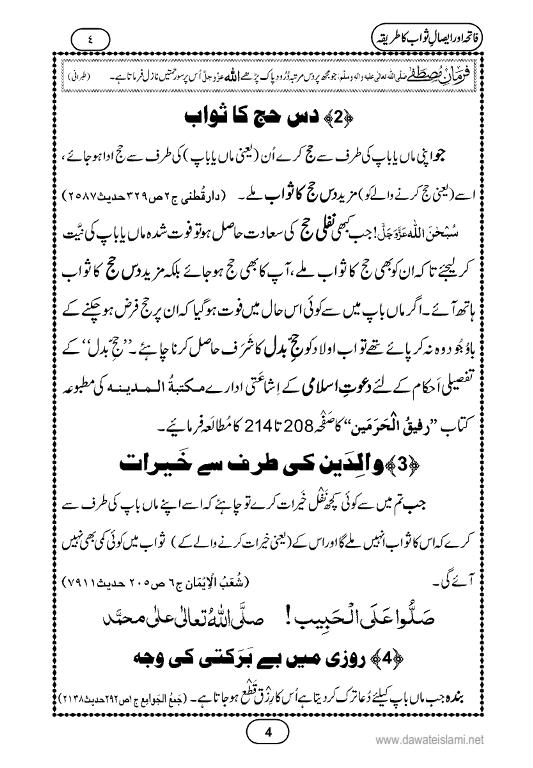 فاتحہ اور ایصالِ ثواب کا طریقہ
٤
فرمانِ مصطَفٰے صلی اللہ تعالیٰ علیہ والہ وسلم: جو مجھ پر دس مرتبہ دُرُود پاک پڑھے اللہ عزوجل اُس پر سو رحمتیں نازل فرماتا ہے۔ (طبرانی)
﴿2﴾ دس حج کا ثواب
جو اپنی ماں یا باپ کی طرف سے حج کرے اُن (یعنی ماں یا باپ) کی طرف سے حج ادا ہو جائے،
اسے (یعنی حج کرنے والے کو) مزید دس حج کا ثواب ملے۔ (دارقُطنی ج۲ ص۳۲۹ حدیث ۲۵۸۷)
سُبْحٰنَ اللہ عَزَّوَجَلَّ! جب کبھی نفلی حج کی سعادت حاصل ہو تو فوت شدہ ماں یا باپ کی نیَّت
کر لیجئے تاکہ ان کو بھی حج کا ثواب ملے، آپ کا بھی حج ہو جائے بلکہ مزید دس حج کا ثواب
ہاتھ آئے۔ اگر ماں باپ میں سے کوئی اس حال میں فوت ہو گیا کہ ان پر حج فرض ہو چکنے کے
باوُجُود وہ نہ کر پائے تھے تو اب اولاد کو حجِ بدل کا شَرَف حاصل کرنا چاہئے۔ ”حجِ بدل“ کے
تفصیلی اَحکام کے لئے دعوتِ اسلامی کے اِشاعَتی ادارے مکتبۃُ المدینہ کی مطبوعہ
کتاب ”رفیقُ الْحَرَمَین“ کا صَفْحَہ 208 تا 214 کا مُطالَعہ فرمائیے۔
﴿3﴾ والِدَین کی طرف سے خَیرات
جب تم میں سے کوئی کچھ نَفْل خَیرات کرے تو چاہئے کہ اسے اپنے ماں باپ کی طرف سے
کرے کہ اس کا ثواب انہیں ملے گا اور اس کے (یعنی خیرات کرنے والے کے) ثواب میں کوئی کمی بھی نہیں
آئے گی۔ (شُعَبُ الْاِیْمَان ج۶ ص۲۰۵ حدیث ۷۹۱۱)
صَلُّوا عَلَی الْحَبِیب! صلَّی اللہُ تعالیٰ علیٰ محمَّد
﴿4﴾ روزی میں بے بَرَکتی کی وجہ
بندہ جب ماں باپ کیلئے دُعا ترک کر دیتا ہے اُس کا رِزْق قَطْع ہو جاتا ہے۔ (جَمْعُ الْجَوامِع ج۱ ص۲۹۲ حدیث ۲۱۳۸)
4
www.dawateislami.net